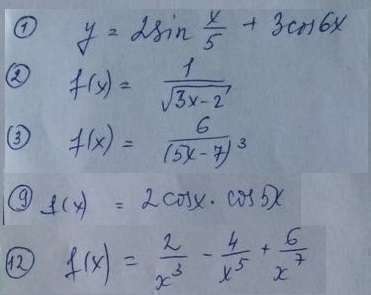 ① y = 2sin x/5 + 3cos6x
② f(x) = 1/√(3x-2)
③ f(x) = 6/(5x-7)³
⑨ f(x) = 2cosx · cos5x
⑫ f(x) = 2/x³ - 4/x⁵ + 6/x⁷